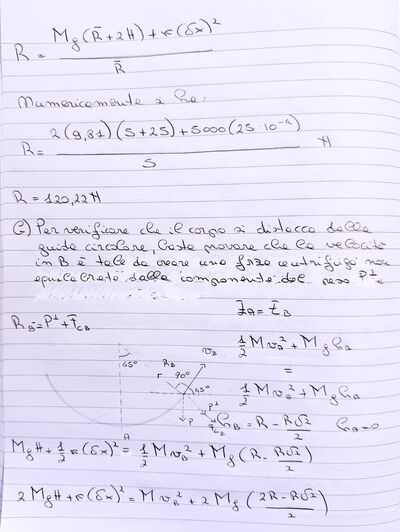 R = Mg(R̄+2H)+k(δx)² / R̄
Numericamente si ha:
R = 2(9,81)(5+25)+5000(25·10⁻⁴) / 5 N
R = 120,22 N
C) Per verificare che il corpo si distacca dalla
guida circolare, basta provare che la velocità
in B è tale da creare una forza centrifuga non
equilibrata dalla componente del peso P⊥
E_A = E_B
R_B = P⊥ + F_CB
½ M v_A² + M g h_A
=
½ M v_B² + M g h_B
45° r R_B 90° v_B 45° P⊥ P F_CB A
h_B = R - R√2/2 h_A = 0
MgH + ½ k(δx)² = ½ M v_B² + Mg(R - R√2/2)
2MgH + k(δx)² = M v_B² + 2Mg(2R - R√2 / 2)